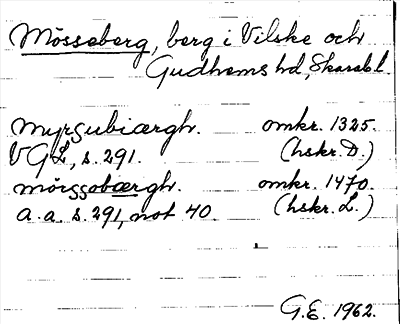 Mösseberg, berg i Vilske och
Gudhems hd, Skarab.l.
myrgubiærgh. omkr. 1325.
VGL, s. 291. (hskr. D.)
mörgsobærgh. omkr. 1470.
a. a. s. 291, not 40. (hskr. L.)
G.E. 1962.